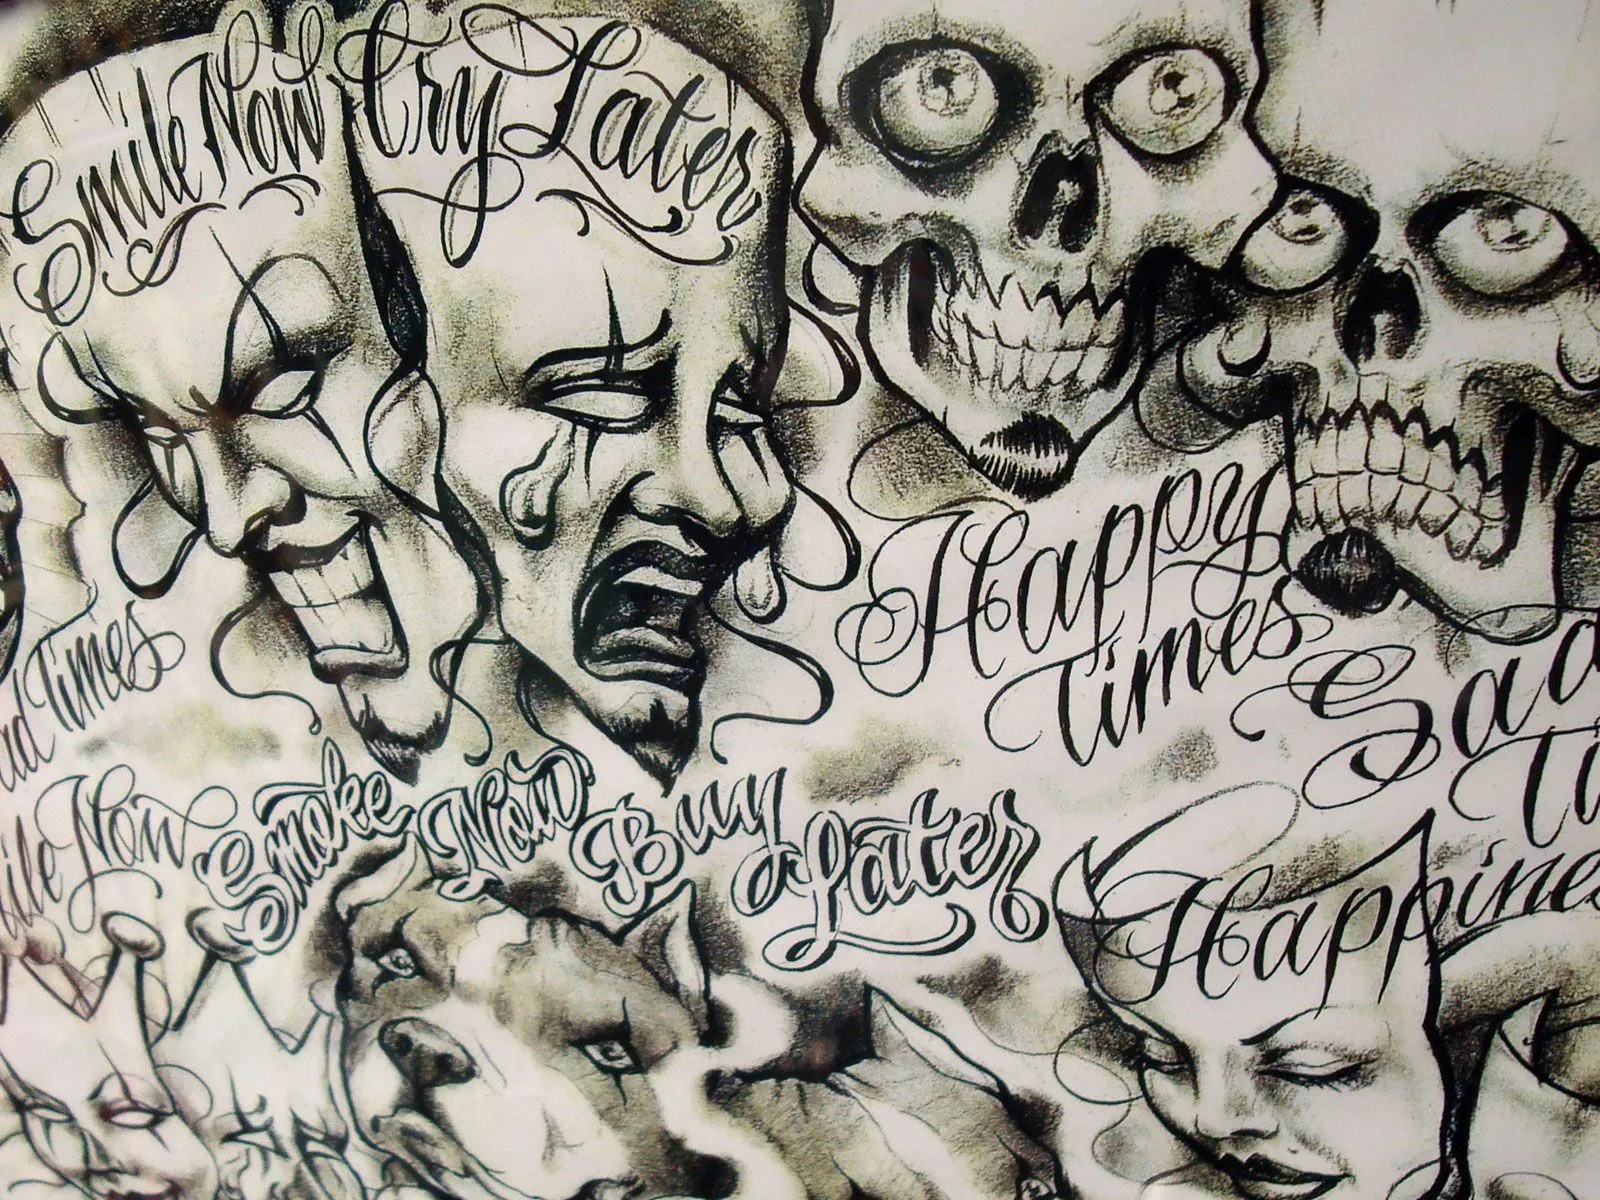 Smile Now Cry Later
Happy
Times
Sad
Ti
Times
Now
Smoke Now Buy Later
Happines